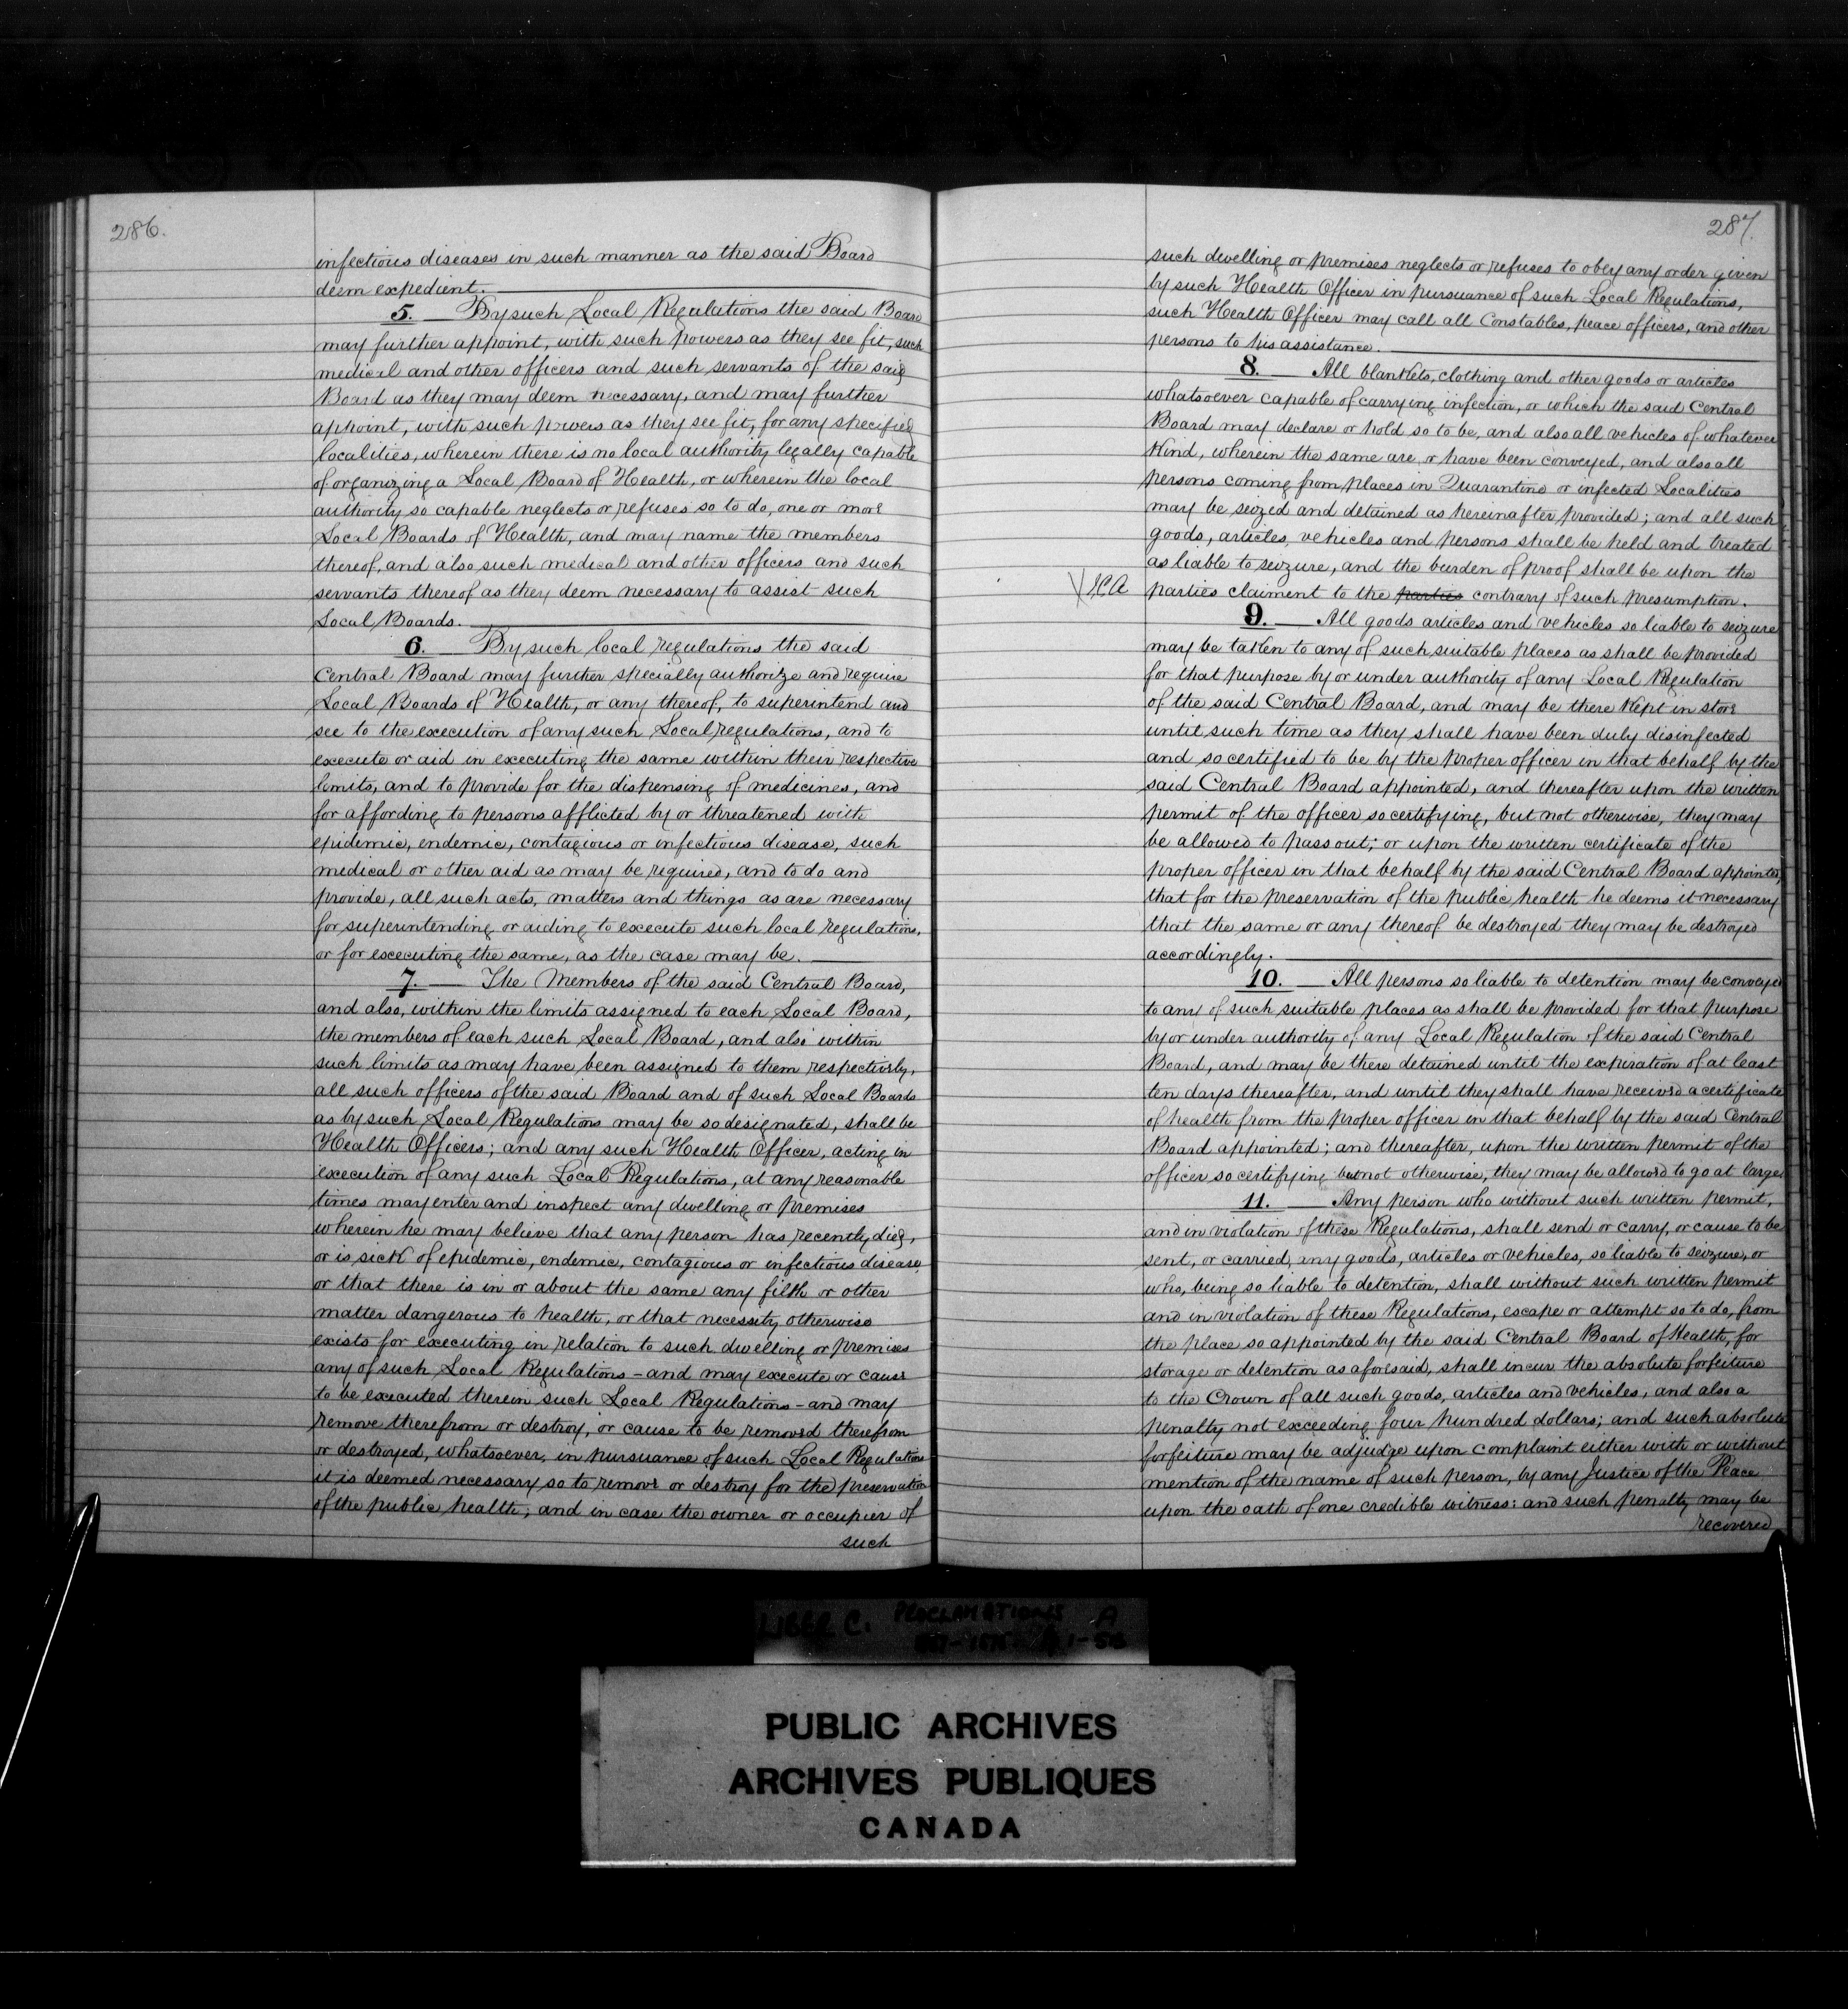 286.
infectious diseases in such manner as the said Board
deem expedient.
5. — By such Local Regulations the said Board
may further appoint, with such powers as they see fit, such
medical and other officers and such servants of the said
Board as they may deem necessary, and may further
appoint, with such powers as they see fit, for any specified
localities, wherein there is no local authority legally capable
of organizing a Local Board of Health, or wherein the local
authority so capable neglects or refuses so to do, one or more
Local Boards of Health, and may name the members
thereof, and also such medical and other officers and such
servants thereof as they deem necessary to assist such
Local Boards.
6. — By such local regulations the said
Central Board may further specially authorize and require
Local Boards of Health, or any thereof, to superintend and
see to the execution of any such Local regulations, and to
execute or aid in executing the same within their respective
limits, and to provide for the dispensing of medicines, and
for affording to persons afflicted by or threatened with
epidemic, endemic, contagious or infectious disease, such
medical or other aid as may be required, and to do and
provide, all such acts, matters and things as are necessary
for superintending or aiding to execute such local regulations,
or for executing the same, as the case may be.
7. — The Members of the said Central Board,
and also, within the limits assigned to each Local Board,
the members of each such Local Board, and also within
such limits as may have been assigned to them respectively,
all such officers of the said Board and of such Local Boards
as by such Local Regulations may be so designated, shall be
Health Officers; and any such Health Officer, acting in
execution of any such Local Regulations, at any reasonable
times may enter and inspect any dwelling or premises
wherein he may believe that any person has recently died,
or is sick of epidemic, endemic, contagious or infectious disease,
or that there is in or about the same any filth or other
matter dangerous to health, or that necessity otherwise
exists for executing in relation to such dwelling or premises
any of such Local Regulations – and may execute or cause
to be executed therein such Local Regulations – and may
remove therefrom or destroy, or cause to be removed therefrom
or destroyed, whatsoever, in pursuance of such Local Regulations
it is deemed necessary so to remove or destroy for the preservation
of the public health; and in case the owner or occupier of
such
287.
such dwelling or premises neglects or refuses to obey any order given
by such Health Officer in pursuance of such Local Regulations,
such Health Officer may call all Constables, peace officers, and other
persons to his assistance.
8. — All blankets, clothing and other goods or articles
whatsoever capable of carrying infection, or which the said Central
Board may declare or hold so to be, and also all vehicles of whatever
Kind, wherein the same are or have been conveyed, and also all
persons coming from places in Quarantine or infected Localities
may be seized and detained as hereinafter provided; and all such
goods, articles, vehicles and persons shall be held and treated
as liable to seizure, and the burden of proof shall be upon the
parties claiment to the parties contrary of such presumption.
9. — All goods articles and vehicles so liable to seizure
may be taken to any of such suitable places as shall be provided
for that purpose by or under authority of any Local Regulation
of the said Central Board, and may be there Kept in store
until such time as they shall have been duly disinfected
and so certified to be by the proper officer in that behalf by the
said Central Board appointed, and thereafter upon the written
permit of the officer so certifying, but not otherwise, they may
be allowed to pass out; or upon the written certificate of the
proper officer in that behalf by the said Central Board appointed,
that for the preservation of the public health he deems it necessary
that the same or any thereof be destroyed they may be destroyed
accordingly.
10. — All persons so liable to detention may be conveyed
to any of such suitable places as shall be provided for that purpose
by or under authority of any Local Regulation of the said Central
Board, and may be there detained until the expiration of at least
ten days thereafter, and until they shall have received a certificate
of health from the proper officer in that behalf by the said Central
Board appointed; and thereafter, upon the written permit of the
officer so certifying but not otherwise, they may be allowed to go at large.
11. — Any person who without such written permit,
and in violation of these Regulations, shall send or carry, or cause to be
sent, or carried, any goods, articles or vehicles, so liable to seizure, or
who, being so liable to detention, shall without such written permit
and in violation of these Regulations, escape or attempt so to do, from
the place so appointed by the said Central Board of Health, for
storage or detention as aforesaid, shall incur the absolute forfeiture
to the Crown of all such goods, articles and vehicles, and also a
penalty not exceeding four hundred dollars; and such absolute
forfeiture may be adjudge upon complaint either with or without
mention of the name of such person, by any Justice of the Peace
upon the oath of one credible witness: and such penalty may be
recovered
LIBER C. PROCLAMATIONS A
PUBLIC ARCHIVES
ARCHIVES PUBLIQUES
CANADA